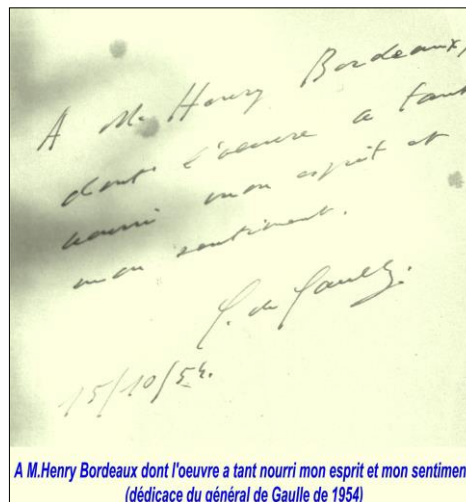 A M. Henry Bordeaux,
dont l'oeuvre a tant
nourri mon esprit et
mon sentiment.
C. de Gaulle.
15/10/54.
A M.Henry Bordeaux dont l'oeuvre a tant nourri mon esprit et mon sentimen
(dédicace du général de Gaulle de 1954)